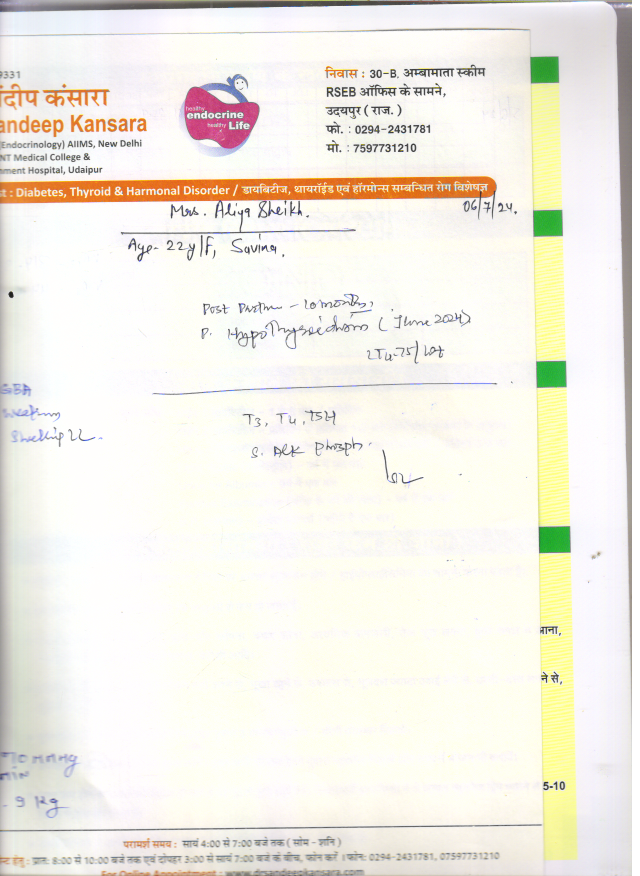 9331
दीप कंसारा
andeep Kansara
(Endocrinology) AIIMS, New Delhi
NT Medical College &
nment Hospital, Udaipur
healthy
endocrine
healthy Life
निवास : 30-B, अम्बामाता स्कीम
RSEB ऑफिस के सामने,
उदयपुर ( राज. )
फो. : 0294-2431781
मो. : 7597731210
st : Diabetes, Thyroid & Harmonal Disorder / डायबिटीज, थायरॉईड एवं हॉरमोन्स सम्बन्धित रोग विशेषज्ञ
Mrs. Aliya Sheikh.
06/7/24.
Age- 22y/f, Savina.
Post Partum - 10 months,
P. Hypothyroidism (June 2024)
LT4-75/
Swelling LL -
T3, T4, TSH
S. Alk Phosph.
आना,
ने से,
5-10
. 9 Kg
परामर्श समय : सायं 4:00 से 7:00 बजे तक ( सोम - शनि )
न्ट हेतु : प्रातः 8:00 से 10:00 बजे तक एवं दोपहर 3:00 से सायं 7:00 बजे के बीच, फोन करें । फोन: 0294-2431781, 07597731210
For Online Appointment : www.drsandeepkansara.com